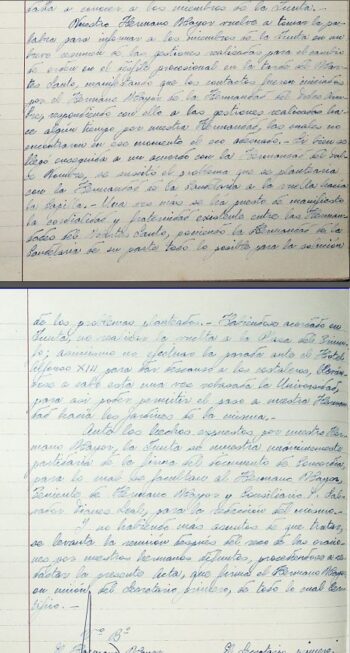 a conocer a los miembros de la Junta.-
Nuestro Hermano Mayor vuelve a tomar la pa-
labra para informar a los miembros de la Junta en un
breve resumen de las gestiones realizadas para el cambio
de orden en el desfile procesional en la tarde del Mar-
tes Santo, manifestando que los contactos fueron iniciados
por el Hermano Mayor de la Hermandad del Dulce Nom-
bre, respondiendo con ello a las gestiones realizadas ha-
ce algún tiempo por nuestra Hermandad, las cuales no
encontraron en ese momento el eco deseado.- Si bien se
llegó enseguida a un acuerdo con la Hermandad del Dul-
ce Nombre, se suscitó el problema que se plantearía
con la Hermandad de la Candelaria a la vuelta hacia
la Capilla.- Una vez más se ha puesto de manifiesto
la cordialidad y fraternidad existente entre las Herman-
dades del Martes Santo, poniendo la Hermandad de la
Candelaria de su parte todo lo posible para la solución
de los problemas planteados.- Habiéndose acordado en
Junta, no realizar la vuelta a la Plaza de
asimismo no efectuar la parada ante el Hotel
Alfonso XIII para dar descanso a los costaleros,
a cabo esta una vez rebasada la Universidad,
para así poder permitir el paso a nuestra Herman-
dad hacia los jardines de la misma.-
Ante los hechos expuestos por nuestro Her-
mano Mayor, la Junta se muestra unánimemente
partidaria de la firma del documento de Concordia,
para lo cual se facultan al Hermano Mayor,
Teniente de Hermano Mayor y Consiliario 1º,
para la redacción del mismo.-
Y no habiendo más asuntos de que tratar,
se levanta la reunión después del rezo de las oracio-
nes por nuestros hermanos difuntos, procediéndose a re-
dactar la presente Acta, que firma el Hermano Mayor
en unión del Secretario primero, de todo lo cual cer-
tifico.-
Vº Bº
El Hermano Mayor El Secretario primero